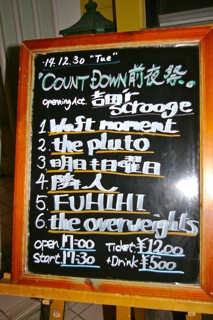 '14.12.30 "Tue"
"COUNT DOWN前夜祭。
opening Act.
Scrooge
1. Waft moment
2. the pluto
3. 明日日曜日
4. 隣人
5. FUHIHI
6. the overweights
open 17:00 Ticket ¥1200
Start. 17:30 +Drink ¥500